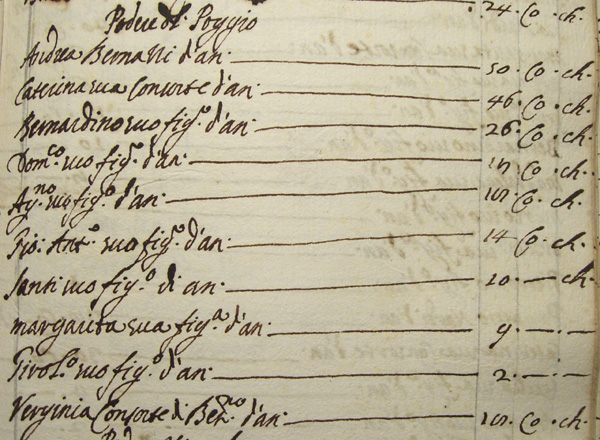 24. Co. ch.
Podere d. Poggio
Andrea Bernatti d'an: 50. Co. ch.
Caterina sua Consorte d'an: 46. Co. ch.
Bernardino suo fig.o d'an: 26. Co. ch.
Dom.co suo fig.o d'an: Co. ch.
Ag.no suo fig.o d'an: Co. ch.
Gio: Ant.o suo fig.o d'an: 14 Co. ch.
Santi suo fig.o di an: 10. — ch.
margarita sua fig.a d'an: 9. — . —
Girol.o suo fig.o d'an: 2. — . —
Verginia Consorte di Ber.no d'an: Co. ch.